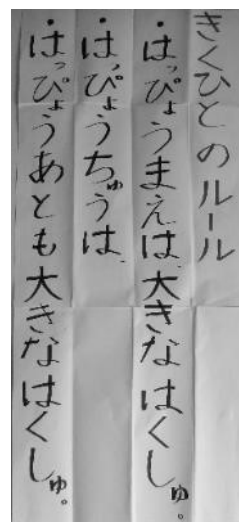 きくひとのルール
・はっぴょうまえは、大きなはくしゅ。
・はっぴょうちゅうは、
・はっぴょうあとも大きなはくしゅ。